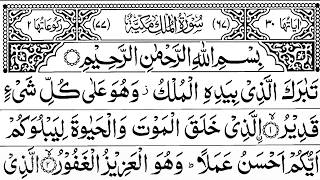 اٰيَاتُهَا ٣٠ (٦٧) سُوْرَةُ الْمُلْكِ مَكِّيَّةٌ (٧٧) رُكُوْعَاتُهَا ٢
بِسْمِ اللّٰهِ الرَّحْمٰنِ الرَّحِيْمِ
تَبٰرَكَ الَّذِىْ بِيَدِهِ الْمُلْكُ ز وَهُوَ عَلٰى كُلِّ شَىْءٍ
قَدِيْرُ ۙ﴿۱﴾ الَّذِىْ خَلَقَ الْمَوْتَ وَالْحَيٰوةَ لِيَبْلُوَكُمْ
اَيُّكُمْ اَحْسَنُ عَمَلًا ؕ وَهُوَ الْعَزِيْزُ الْغَفُوْرُ ۙ﴿۲﴾ الَّذِىْ